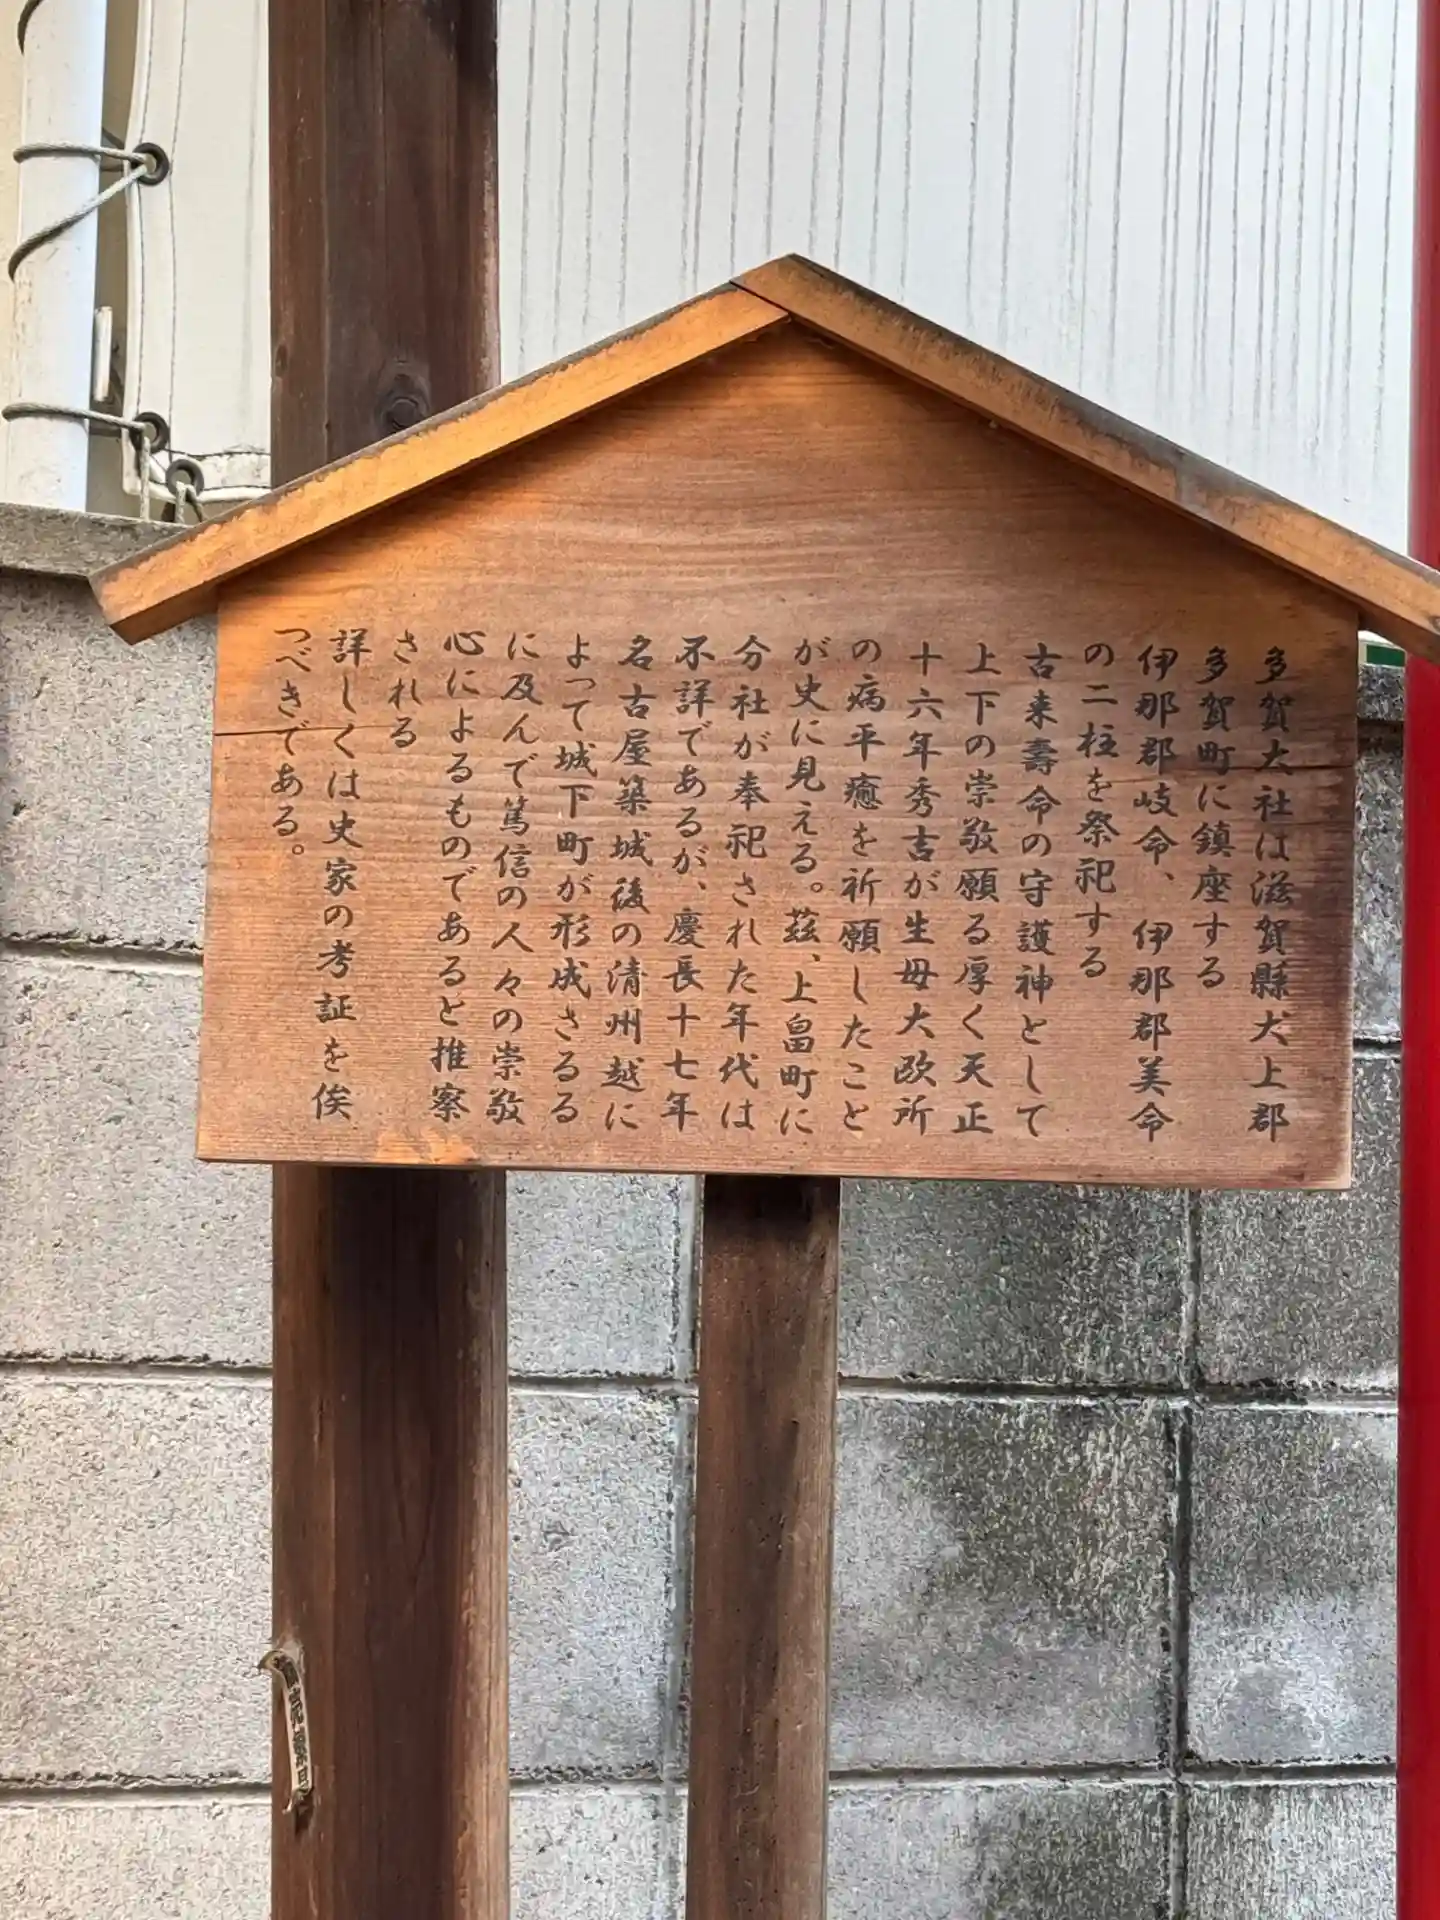 多賀大社は滋賀縣犬上郡
多賀町に鎮座する
伊那郡岐命、伊那郡美命
の二柱を祭祀する
古来壽命の守護神として
上下の崇敬願る厚く天正
十六年秀吉が生母大欧所
の病平癒を祈願したこと
が史に見える。茲、上畠町に
分社が奉祀された年代は
不詳であるが、慶長十七年
名古屋築城後の清州越に
よって城下町が形成さるる
に及んで篤信の人々の崇敬
心によるものであると推察
される
詳しくは史家の考証を俟
つべきである。